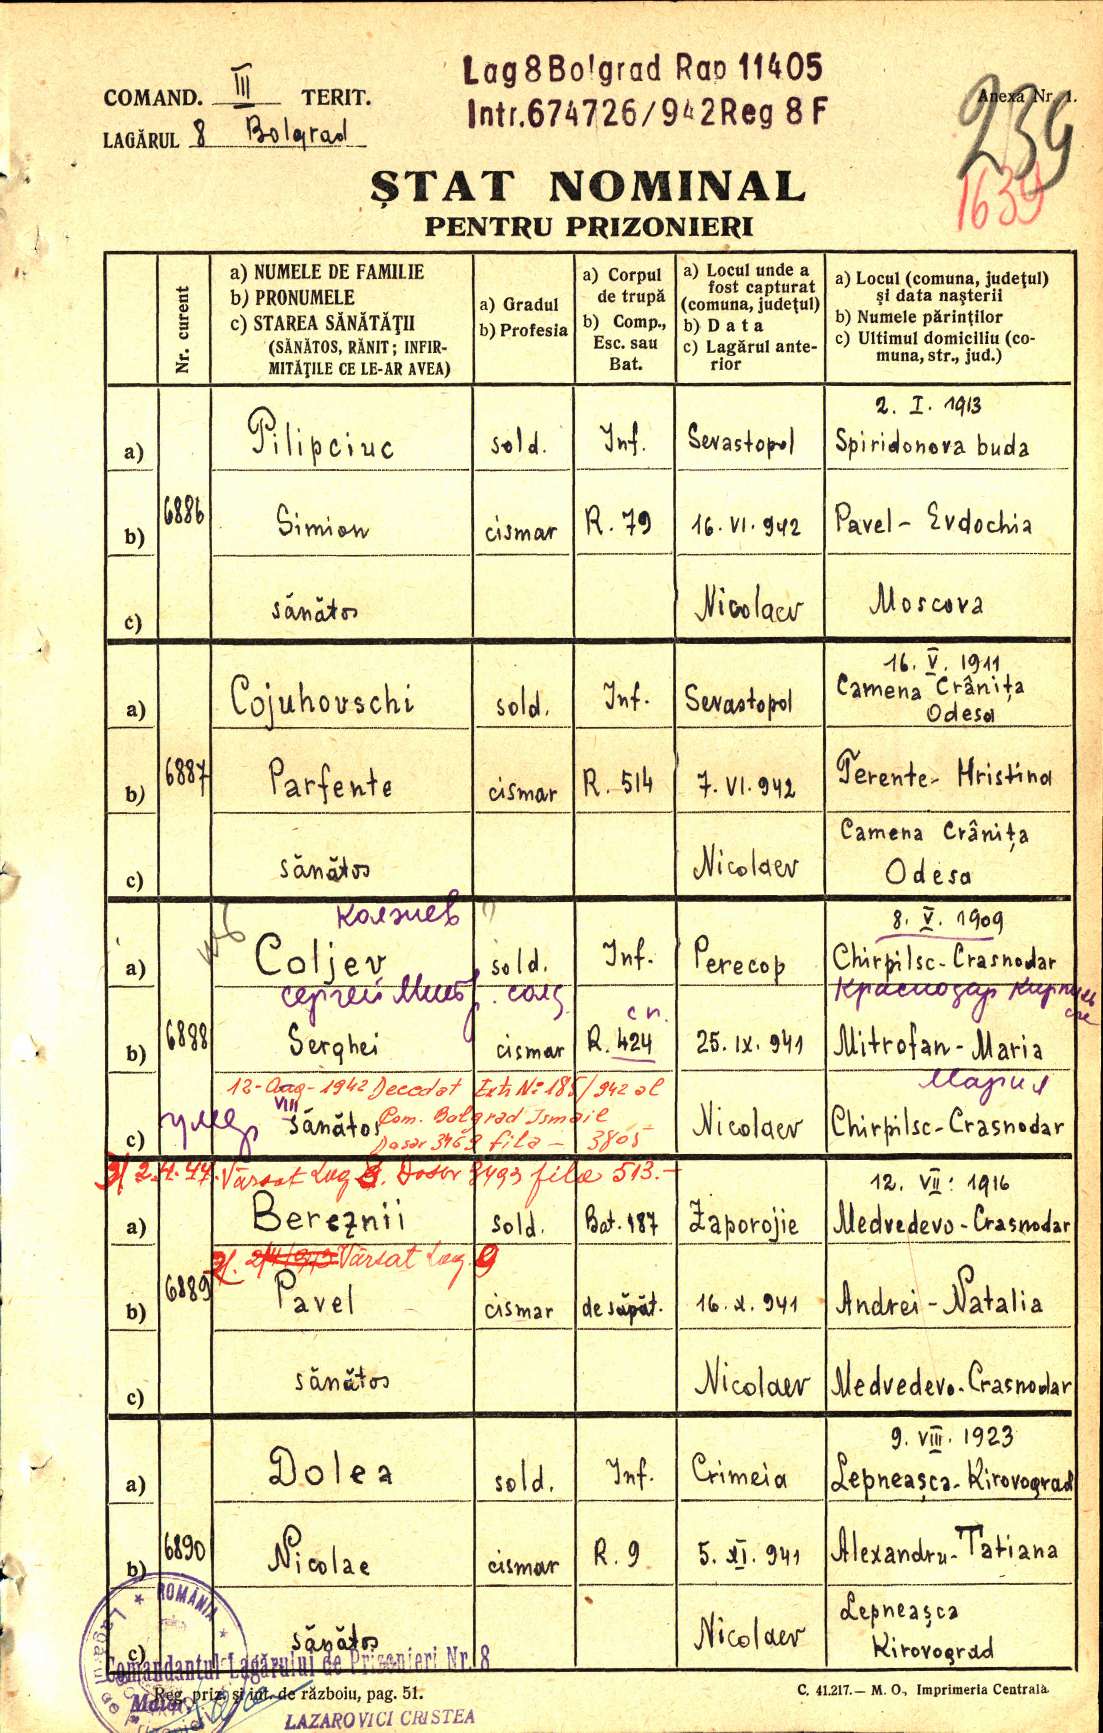 COMAND. III TERIT.
Lag 8 Bolgrad Rap 11405
Intr. 674726/942 Reg 8 F
Anexa Nr. 1.
239
1639
LAGĂRUL 8 Bolgrad
ȘTAT NOMINAL
PENTRU PRIZONIERI
Nr. curent
a) NUMELE DE FAMILIE
b) PRONUMELE
c) STAREA SĂNĂTĂȚII
(SĂNĂTOS, RĂNIT; INFIR-
MITĂȚILE CE LE-AR AVEA)
a) Gradul
b) Profesia
a) Corpul
de trupă
b) Comp.,
Esc. sau
Bat.
a) Locul unde a
fost capturat
(comuna, județul)
b) Data
c) Lagărul ante-
rior
a) Locul (comuna, județul)
și data nașterii
b) Numele părinților
c) Ultimul domiciliu (co-
muna, str., jud.)
2. I. 1913
a) Pilipciuc sold. Inf. Sevastopol Spiridonova buda
6886
b) Simion cismar R. 79 16. VI. 942 Pavel - Evdochia
c) sănătos Nicolaev Moscova
16. V. 1911
a) Cojuhovschi sold. Inf. Sevastopol Camena Crânița
Odesa
6887
b) Parfente cismar R. 514 7. VI. 942 Terente - Hristina
Camena Crânița
c) sănătos Nicolaev Odesa
Колжиев
8. V. 1909
a) Coljev sold. Inf. Perecop Chirpilsc - Crasnodar
Сергей Мит. солд. Краснодар
сп.
6888
b) Serghei cismar R. 424 25. IX. 941 Mitrofan - Maria
12 - Aug - 1942 Decedat Extr № 185/942 al Мария
VIII
умер Com. Bolgrad Ismail
c) sănătos Nicolaev Chirpilsc - Crasnodar
Dosar 3469 fila - 3805
2.4.44. Vărsat Lag 9. Dosar 3493 fila 513.-
12. VII. 1916
a) Bereznii sold. Bat. 187 Zaporojie Medvedevo - Crasnodar
Vărsat Lag. 9
6889
b) Pavel cismar de săpăt. 16. X. 941 Andrei - Natalia
c) sănătos Nicolaev Medvedevo - Crasnodar
9. VIII. 1923
a) Dolea sold. Inf. Crimeia Lepneasca - Kirovograd
6890
b) Nicolae cismar R. 9 5. XI. 941 Alexandru - Tatiana
Lepneașca
c) sănătos Nicolaev Kirovograd
ROMÂNIA
Comandantul Lagărului de Prizonieri Nr. 8
Reg. priz. și int. de războiu, pag. 51.
C. 41.217. — M. O., Imprimeria Centrala.
Maior,
LAZAROVICI CRISTEA